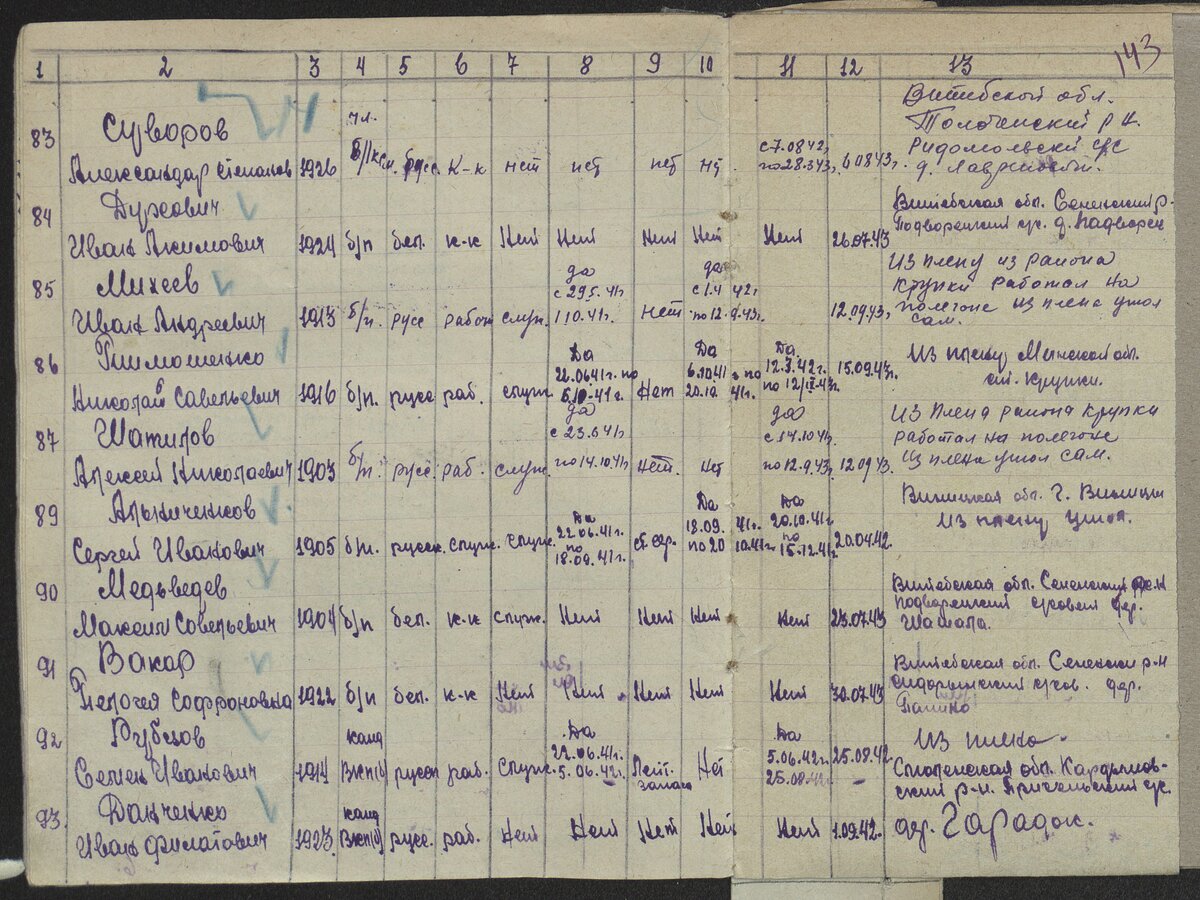 143
1 2 3 4 5 6 7 8 9 10 11 12 13
83 Суворов
Александар Степанов 1926 чл. б/лксм. русс. к-к нет нет нет нт с 7.08.42г по 28.3.43г 6.08.43г
Витебской обл.
Толоченский р-н.
с/с
д.
84 Дужович
Иван Акимович 1924 б/п бел. к-к Нет Нет Нет Нет Нет 26.07.43
Витебская обл. Сененский р-
Подворенский с/с. д. Надворен
85 Михеев
Иван Андреевич 1913 б/п. русс рабоч служ. да с 29.5.41г 1.10.41г. нет да с 1.4 42г по 12.9.43г. 12.09.43г
Из плену из района
Крупки работал на
полегоне из плена ушол
сам.
86 Тимошенко
Николай Савельевич 1916 б/п. русс раб. служ. Да 22.06.41г. по 5.10.41г. Нет Да 6.10.41г по 20.10 41г. Да 12.3.42г. по 12/IX-43г. 15.09.43г.
Из плену Минской обл.
ст. Крупки.
87 Шатилов
Алексей Николаевич 1903 б/п. русс. раб. служ. да с 23.6.41г по 14.10.41г нет. нет да с 14.10.41г по 12.9.43г 12.09.43г.
Из Плена района Крупки
работал на полегоне
из плена ушол сам.
89
Сергей Иванович 1905 б/п. русск. служ. служ. Да 22.06.41г. по 18.09.41г. ст. сер. Да 18.09. 41г. по 20 10.41г. Да 20.10.41г. по 15.12.41г. 20.04.42.
Виницкая обл. г. Виницы
Из плену ушол.
90 Медьведев
Максим Совельевич 1904 б/п бел. к-к служ. Нет Нет Нет Нет 23.07.43
Витебская обл. Сененский р-н
Подворенский с/совет дер.
91 Вакар
Пелогея Софроновна 1922 б/п бел. к-к Нет Нет Нет Нет Нет 30.07.43
Витебская обл. Сененский р-н
с/сов. дер.
92 Рубцов
Семен Иванович 1914 канд ВКП(б) русск раб. служ. Да 22.06.41г. 5.06.42г. Лейт. запаса Нет Да 5.06.42г. 25.08.42г 25.08.42.
Из плена.
Смоленская обл. Кардымов-
ский р-н. с/с.
93. Данченко
Иван Филатович 1923. канд ВКП(б) русс. раб. Нет Нет Нет Нет Нет 1.09.42.
дер. Гарадок.